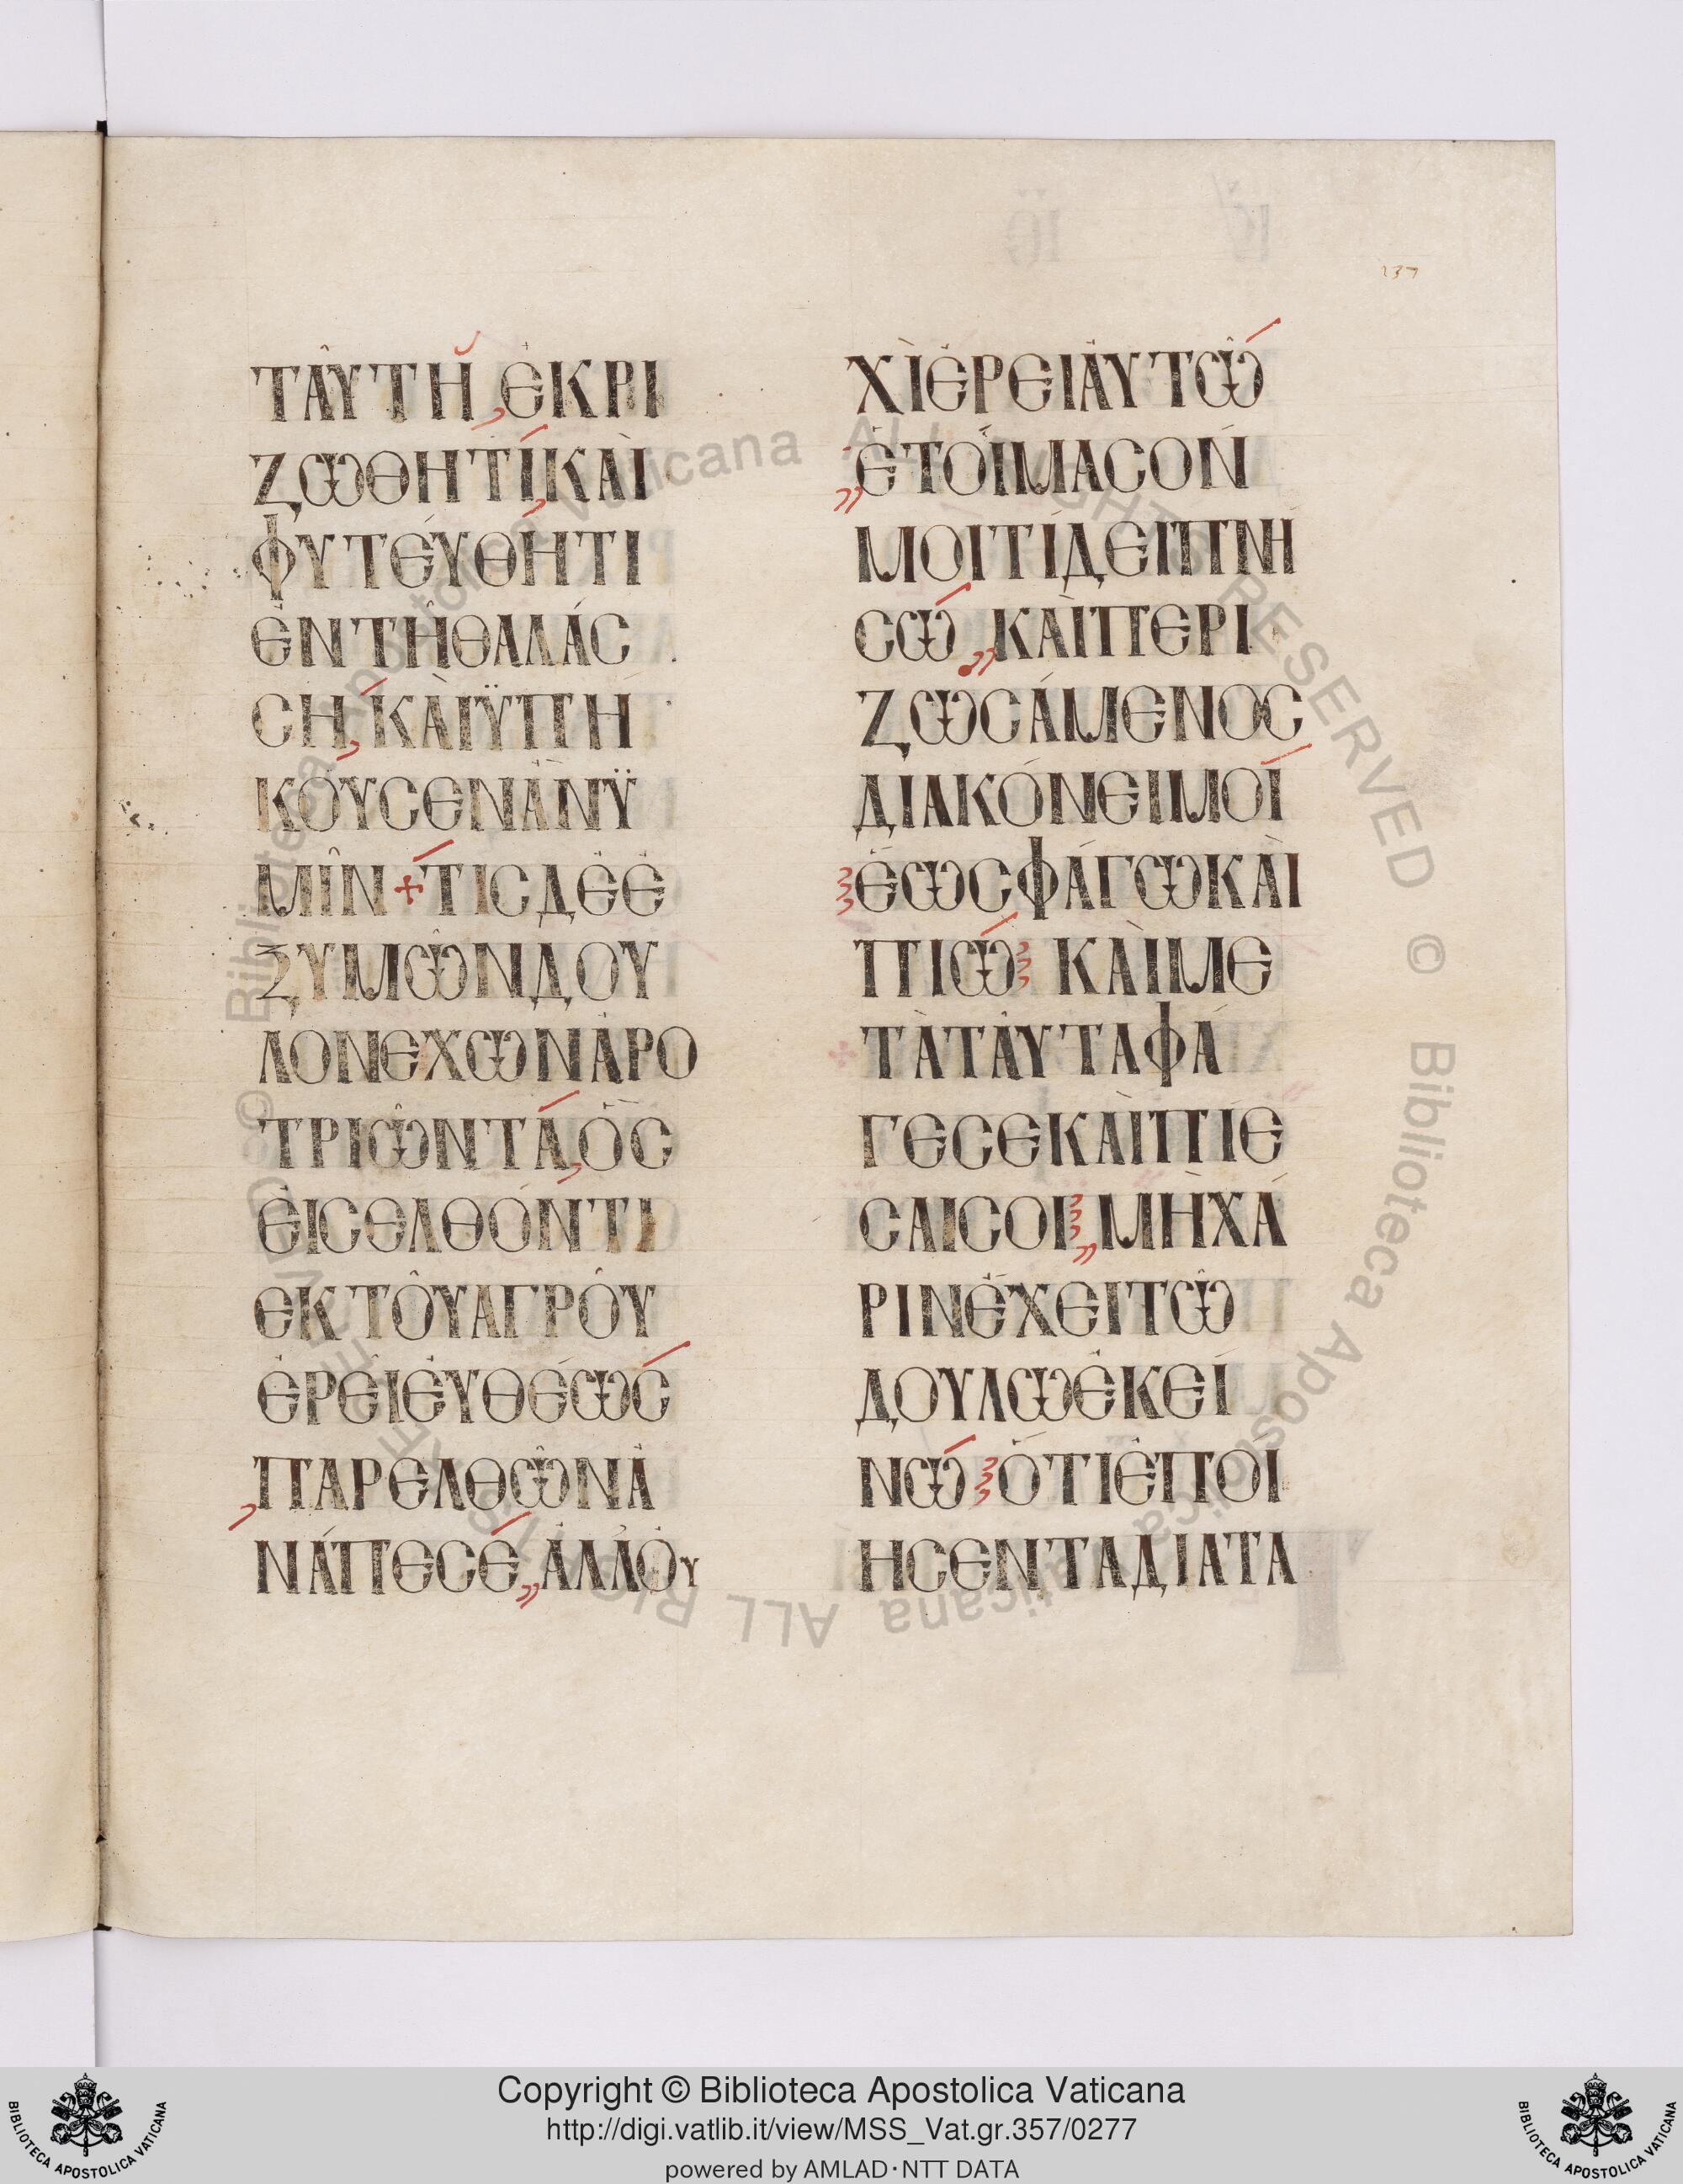 137
ΤΑΥΤΗ ΕΚΡΙ
ΖΩΘΗΤΙ ΚΑΙ
ΦΥΤΕΥΘΗΤΙ
ΕΝ ΤΗ ΘΑΛΑΣ
ΣΗ ΚΑΙ ΫΠΗ
ΚΟΥΣΕΝ ΑΝ Ϋ
ΜΙΝ + ΤΙΣ ΔΕ Ε
ΞΥΜΩΝ ΔΟΥ
ΛΟΝ ΕΧΩΝ ΑΡΟ
ΤΡΙΩΝΤΑ ΟΣ
ΕΙΣΕΛΘΟΝΤΙ
ΕΚ ΤΟΥ ΑΓΡΟΥ
ΕΡΕΙ ΕΥΘΕΩΣ
ΠΑΡΕΛΘΩΝ Α
ΝΑΠΕΣΕ ΑΛΛ ΟΥ
ΧΙ ΕΡΕΙ ΑΥΤΩ
ΕΤΟΙΜΑΣΟΝ
ΜΟΙ ΤΙ ΔΕΙΠΝΗ
ΣΩ ΚΑΙ ΠΕΡΙ
ΖΩΣΑΜΕΝΟΣ
ΔΙΑΚΟΝΕΙ ΜΟΙ
ΕΩΣ ΦΑΓΩ ΚΑΙ
ΠΙΩ ΚΑΙ ΜΕ
ΤΑ ΤΑΥΤΑ ΦΑ
ΓΕΣΕ ΚΑΙ ΠΙΕ
ΣΑΙ ΣΟΙ ΜΗ ΧΑ
ΡΙΝ ΕΧΕΙ ΤΩ
ΔΟΥΛΩ ΕΚΕΙ
ΝΩ ΟΤΙ ΕΠΟΙ
ΗΣΕΝ ΤΑ ΔΙΑΤΑ
© Biblioteca Apostolica Vaticana ALL RIGHTS RESERVED © Biblioteca Apostolica Vaticana ALL RIGHTS RESERVED
BIBLIOTECA APOSTOLICA VATICANA
Copyright © Biblioteca Apostolica Vaticana
http://digi.vatlib.it/view/MSS_Vat.gr.357/0277
powered by AMLAD·NTT DATA
BIBLIOTECA APOSTOLICA VATICANA